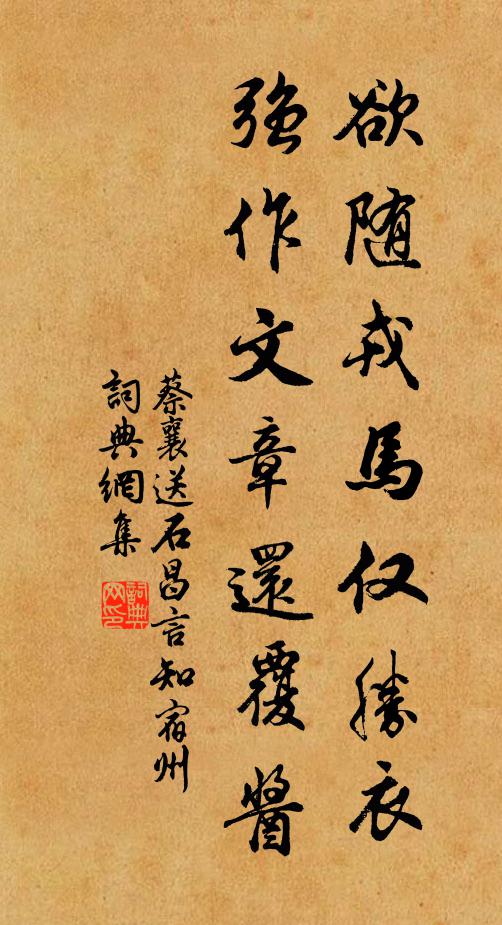 欲随戎馬仅勝衣
強作文章還覆醬
蔡襄送石昌言知宿州
詞典網集
詞典网印